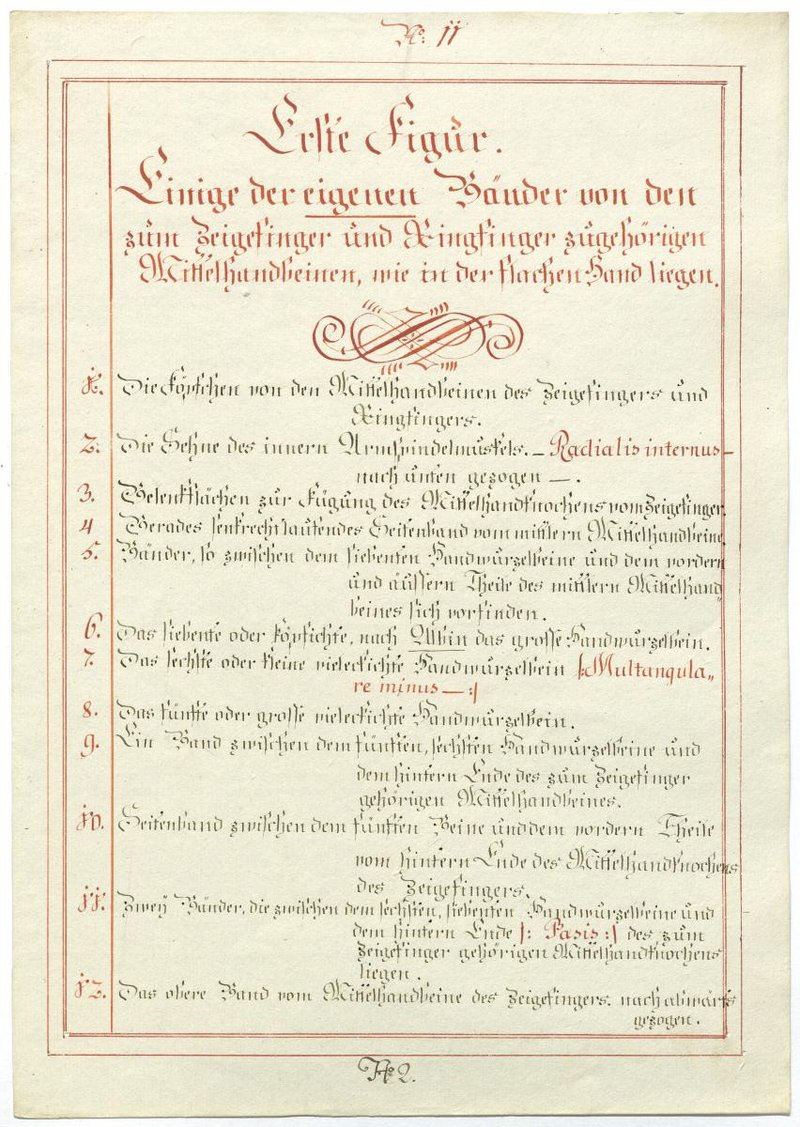 No: 11
Erste Figur.
Einige der eigenen Bänder von den
zum Zeigefinger und Ringfinger zugehörigen
Mittelhandbeinen, wie in der flachen Hand liegen.
1. Die Köpfchen von den Mittelhandbeinen des Zeigefingers und
Ringfingers.
2. Die Sehne des innern Armspindelmuskels. – Radialis internus –
nach unten gezogen –.
3. Gelenkflächen zur Fügung des Mittelhandknochens vom Zeigefinger.
4 Gerades senkrecht laufendes Seitenband vom mittlern Mittelhandbeine.
5. Bänder, so zwischen dem siebenten Handwurzelbeine und dem vordern
und äussern Theile des mittlern Mittelhand
beines sich vorfinden.
6. Das siebente oder köpfichte, nach Albin das grosse Handwurzelbein.
7. Das sechste oder kleine vieleckichte Handwurzelbein |: Multangula„
re minus – :|
8. Das fünfte oder grosse vieleckichte Handwurzelbein.
9. Ein Band zwischen dem fünften, sechsten Handwurzelbeine und
dem hintern Ende des zum Zeigefinger
gehörigen Mittelhandbeines.
10. Seitenband zwischen dem fünften Beine und dem vordern Theile
vom hintern Ende des Mittelhandknochens
des Zeigefingers.
11. Zwey Bänder, die zwischen dem sechsten, siebenten Handwurzelbeine und
dem hintern Ende |: Basis :| des zum
Zeigefinger gehörigen Mittelhandknochens
liegen.
12. Das obere Band vom Mittelhandbeine des Zeigefingers. nach abwärts
gezogen.
2.